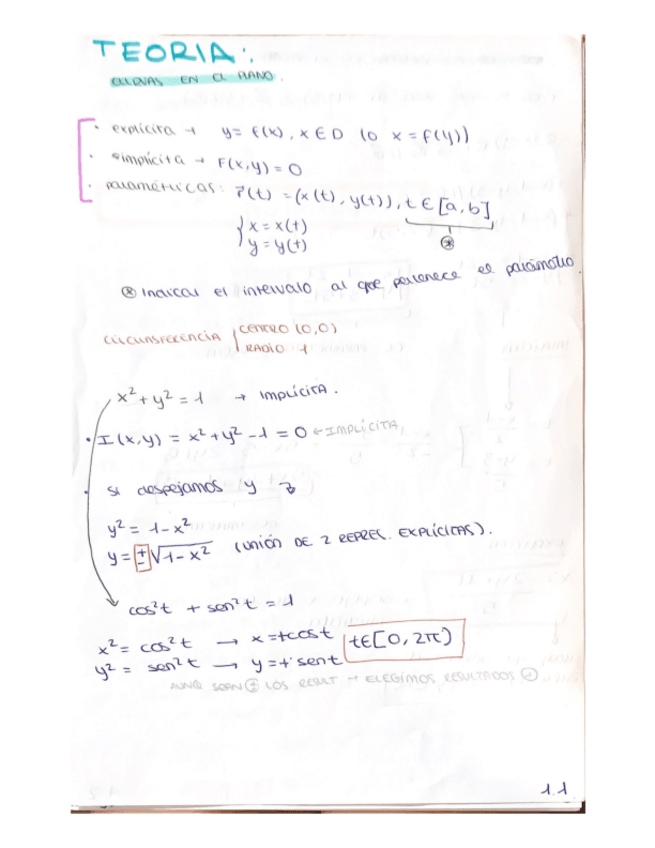 TEORIA:
CURVAS EN EL PLANO.
· explícita → y = f(x), x ∈ D (o x = f(y))
· implícita → F(x,y) = 0
· paramétricas: r⃗(t) = (x(t), y(t)), t ∈ [a,b]
{ x = x(t)
y = y(t)
⊛
⊛ Indicar el intervalo al que pertenece el parámetro.
CIRCUNSFERENCIA { CENTRO (0,0)
RADIO 1
x² + y² = 1 → IMPLÍCITA.
· I(x,y) = x² + y² - 1 = 0 ← IMPLÍCITA
· si despejamos y
y² = 1 - x²
y = ±√1 - x² (UNIÓN DE 2 REPRES. EXPLÍCITAS).
cos²t + sen²t = 1
x² = cos²t → x = + cos t t ∈ [0, 2π)
y² = sen²t → y = + sen t
AUNQ SEAN ± LOS RESULT → ELEGIMOS RESULTADOS ⊕
1.1